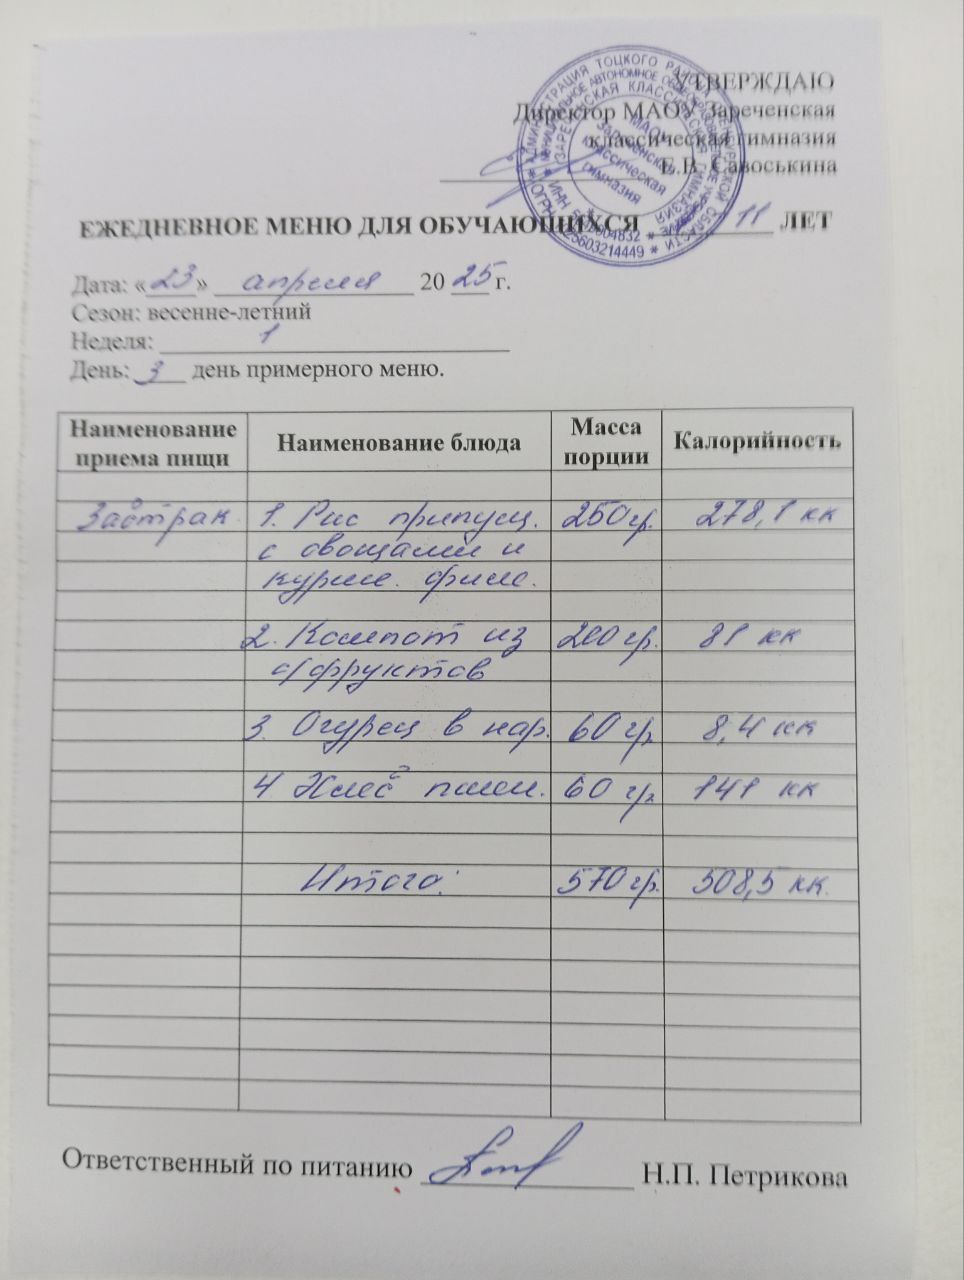 УТВЕРЖДАЮ
Директор МАОУ Зареченская
классическая гимназия
Е.В. Савоськина
АДМИНИСТРАЦИЯ ТОЦКОГО РАЙОНА ОРЕНБУРГСКОЙ ОБЛАСТИ
МУНИЦИПАЛЬНОЕ АВТОНОМНОЕ ОБЩЕОБРАЗОВАТЕЛЬНОЕ
ЗАРЕЧЕНСКАЯ КЛАССИЧЕСКАЯ ГИМНАЗИЯ
МАОУ
Зареченская
классическая
гимназия
ЕЖЕДНЕВНОЕ МЕНЮ ДЛЯ ОБУЧАЮЩИХСЯ 11 ЛЕТ
Дата: «23» апреля 2025 г.
Сезон: весенне-летний
Неделя: 1
День: 3 день примерного меню.
Наименование приема пищи Наименование блюда Масса порции Калорийность
Завтрак 1. Рис припущ. 250 гр. 278,1 кк
с овощами и
курин. филе.
2. Компот из 200 гр. 81 кк
с/фруктов
3. Огурец в нар. 60 гр. 8,4 кк
4 Хлеб пшен. 60 гр. 141 кк
Итого: 570 гр. 508,5 кк.
Ответственный по питанию Н.П. Петрикова